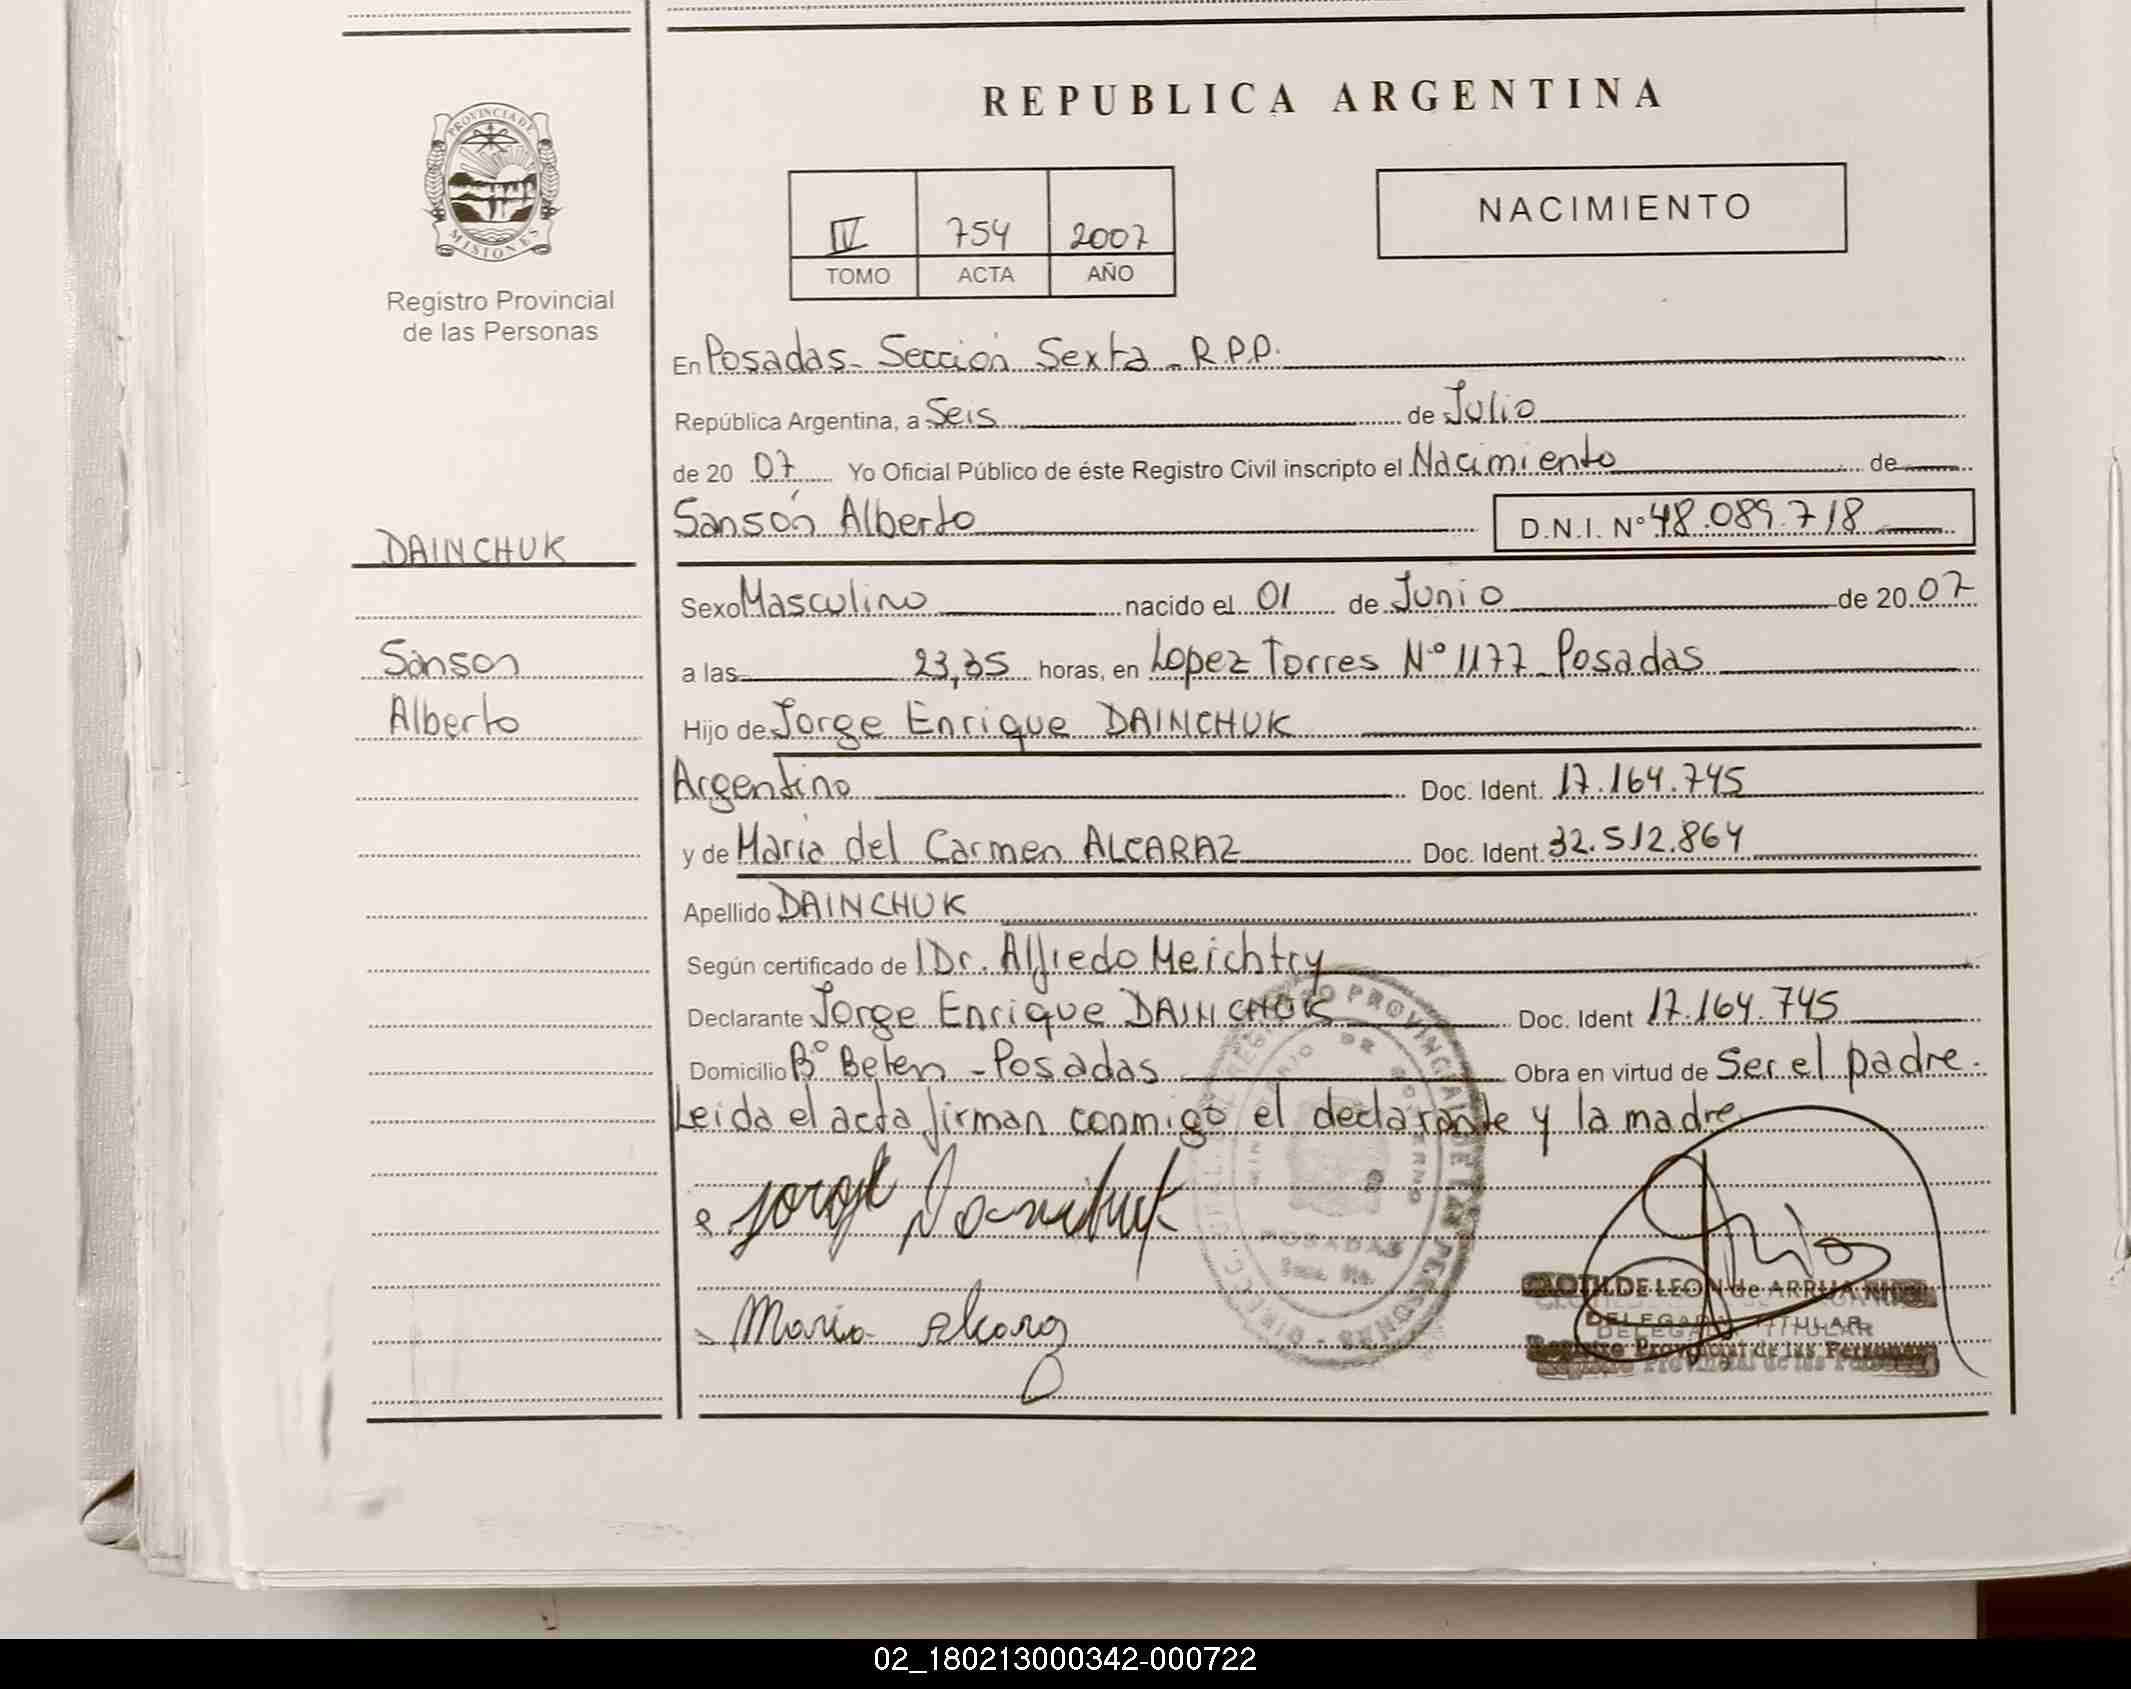 REPUBLICA ARGENTINA
PROVINCIA DE
MISIONES
Registro Provincial
de las Personas
IV 754 2007
TOMO ACTA AÑO
NACIMIENTO
En Posadas - Sección Sexta - R.P.P.
República Argentina, a Seis de Julio
de 20 07 Yo Oficial Público de éste Registro Civil inscripto el Nacimiento de
Sansón Alberto D.N.I. Nº 48.089.718
DAINCHUK
Sanson
Alberto
Sexo Masculino nacido el 01 de Junio de 20 07
a las 23,35 horas, en Lopez Torres Nº 1177 - Posadas
Hijo de Jorge Enrique DAINCHUK
Argentino Doc. Ident. 17.164.745
y de Maria del Carmen ALCARAZ Doc. Ident. 32.512.864
Apellido DAINCHUK
Según certificado de l Dr. Alfredo Meichtry
Declarante Jorge Enrique DAINCHUK Doc. Ident 17.164.745
Domicilio Bº Belen - Posadas Obra en virtud de Ser el padre.
Leida el acta firman conmigo el declarante y la madre
Jorge Dainchuk
Maria Alcaraz
POSADAS
CLOTILDE LEON de ARRUA
DELEGADA TITULAR
Registro Provincial de las Personas
02_180213000342-000722